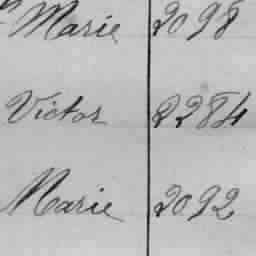 Marie 2098
Victor 2284
Marie 2092